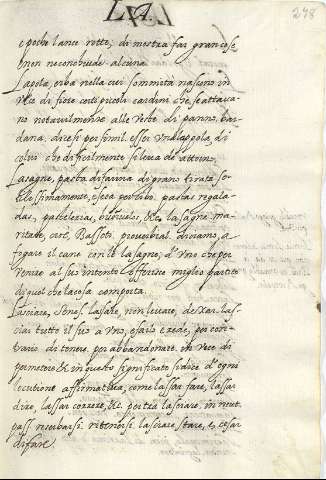 LA
278
e poche lance rotte; di mostra far gran cose
e non ne conchiude alcuna
Lapola, erba nella cui sommità nascono in
vece di fiore certi picoli cardini che se attaca-
no naturalmente alle veste di panno, bar-
dana. dicesi per simil. esser una lappola, di
colui che dificilmente si leva de attorno,
Lasagne, pasta di farina di grano tirata so-
tilissimamente, e seca per cibo. pastas regala-
das, pasteleria, &c. lasagne ma-
ritate, cioè, Bassoti, proverbial. diciamo, a-
fogare il cane con le lasagne, d'uno che per
venire al suo intento offerisce miglior partito
di quel che la cosa comporta.
Lasciare, Senes. lassare, non levare, dexar. las-
ciar tutto il suo a uno, e farlo erede, per con-
trario di tenere, per abbandonare, in vece di
permetere & in questo significato si dice d'ogni
ecutione affirmativa, come lassar fare, lassar
dire, lassar correre, &c. per tra lasciare, in neut.
pass. rimbarsi. ritenersi. lasciare stare, cesar
di fare.